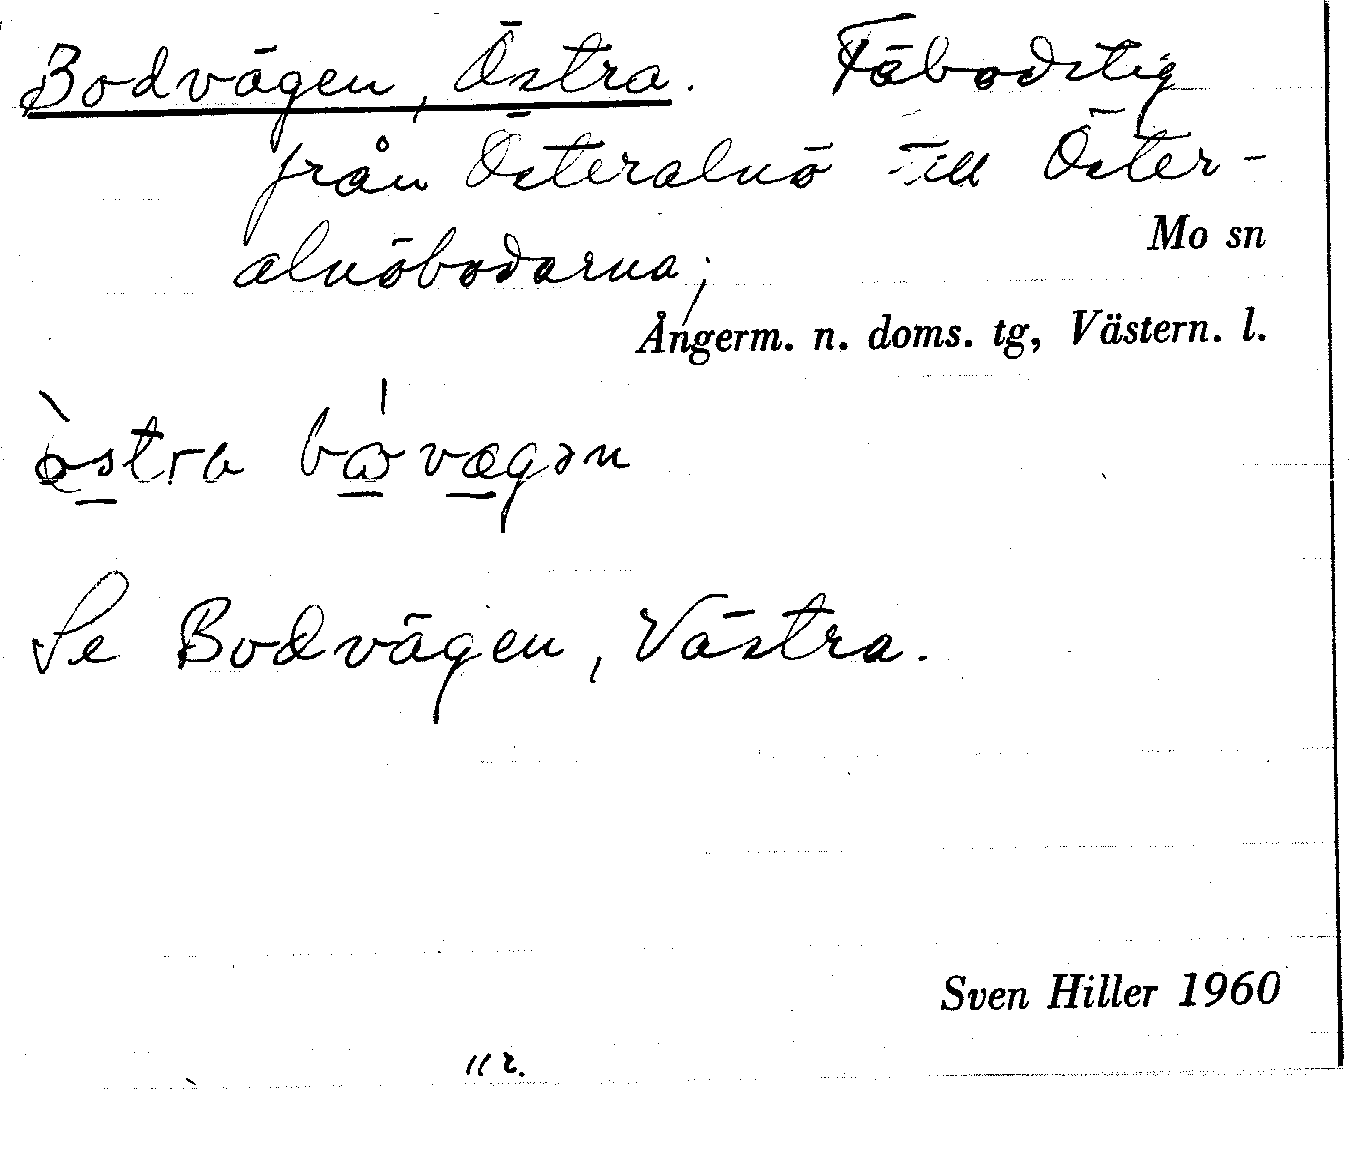 Bodvägen, Östra. Fäbodstig
från Österalnö till Öster-
Mo sn
alnöbodarna;
Ångerm. n. doms. tg, Västern. l.
Se Bodvägen, Västra.
Sven Hiller 1960
112.